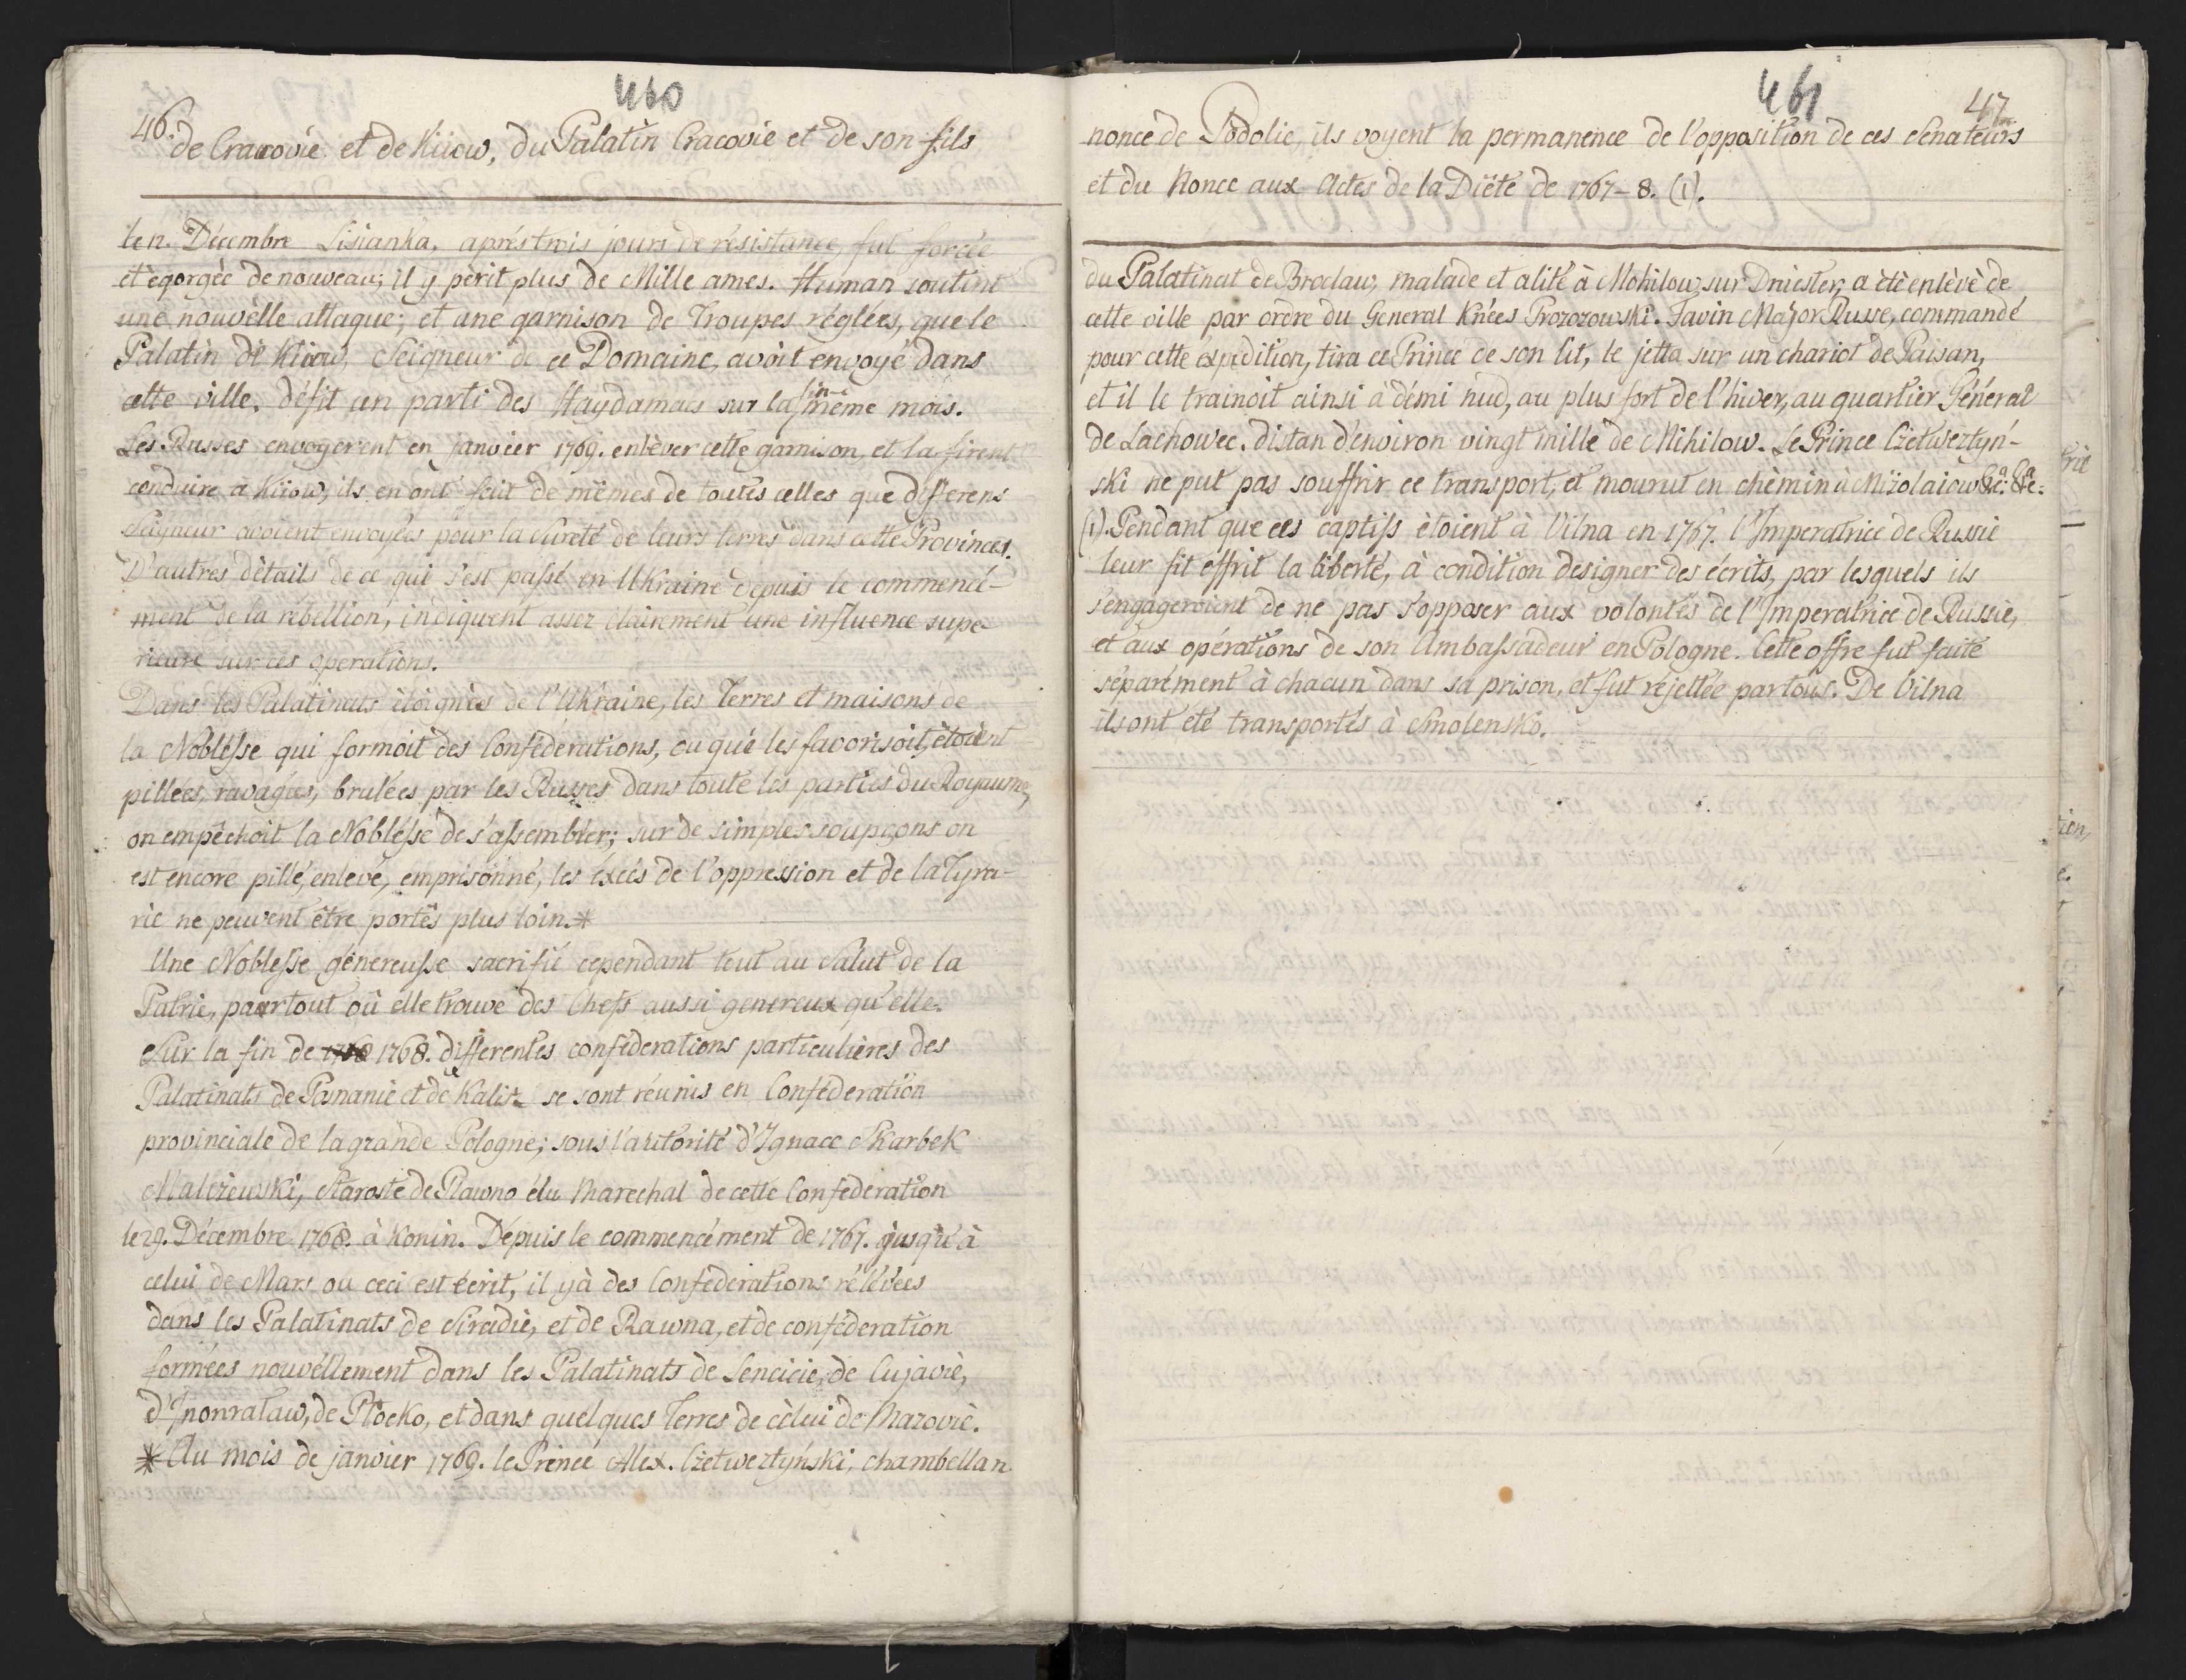 460
46.
de Cracovie et de Kiïow, du Palatin Cracovie et de son fils
le 12. Décembre Lisianka, aprés trois jours de résistance, fut forcée
et égorgée de nouveau; il y périt plus de Mille ames. Human soutint
une nouvèlle attaque; et une garnison de Troupes réglées, que le
Palatin de Kiiow, Seigneur de ce Domaine, avoit envoyé dans
cette ville, défit un parti des Haydamacs sur la fin même mois.
Les Russes envoyerent en janvier 1769. enlèver cette garnison, et la firent
conduire à Kiïow, ils en ont fait de mêmes de toutes celles que differens
Seigneur avoient envoyés pour la sureté de leurs terres dans cette Provinces.
D'autres détails de ce qui s'est passé en Ukraine depuis le commencé-
ment de la rébellion, indiquent assez clairement une influence supe-
rieure sur ces operations.
Dans les Palatinats éloignés de l'Ukraine, les Terres et maisons de
la Noblesse qui formoit des Confédérations, ou qui les favorisoit, étoient
pillées, ravagées, brulées par les Russes dans toute les parties du Royaume,
on empêchoit la Noblésse de s'assembler; sur de simples soupçons on
est encore pillé, enlevé, emprisonné, les éxcés de l'oppression et de la Tyra-
rie ne peuvent être portés plus loin.*
Une Noblesse génereusse sacrifié cependant tout au Salut de la
Patrie, partout où elle trouve des Chefs aussi genereux qu'elle.
Sur la fin de 1768. differentes conféderations particulières des
Palatinats de Posnanie et de Kalisz se sont réunis en Conféderation
provinciale de la grande Pologne; sous l'autorité d'Ignace Skarbek
Malczewski, Staroste de Slawno élu Marechal de cette Conféderation
le 29. Décembre 1768. à Konin. Dépuis le commencément de 1767. jusqu'à
celui de Mars ou ceci est écrit, il y à des Conféderations rélévées
dans les Palatinats de Siradie, et de Rawna, et de conféderation
formées nouvéllement dans les Palatinats de Lencicie, de Cujavie,
d'Inowralaw, de Plocko, et dans quelques Terres de célui de Mazovie.
* Au mois de janvier 1769. le Prince Alex. Czetweztyński, chambellan
461
47.
nonce de Podolie, ils voyent la permanence de l'opposition de ces Senateurs
et du Nonce aux Actes de la Diéte de 1767-8. (1).
du Palatinat de Broclaw, malade et alité à Mohilow sur Dniester, a été enlèvé de
cette ville par ordre du General Knées Prozorowski. Javin Major Russe, commandé
pour cette éxpedition, tira ce Prince de son lit, le jetta sur un chariot de Paisan,
et il le trainoit ainsi à démi nud, au plus fort de l'hiver, au quartier Général
de Lachowce. distan d'environ vingt mille de Mihilow. Le Prince Czetweztyń-
ski ne put pas souffrir ce transport, et mourut en chèmin à Mizolaiow &c. &c.
(1). Pendant que ces captifs étoient à Vilna en 1767. l'Imperatrice de Russie
leur fit offrit la liberté, à condition de signer des écrits, par lesquels ils
s'engageroient de ne pas s'opposer aux volontés de l'Imperatrice de Russie,
et aux opérations de son Ambassadeur en Pologne. Cette offre fut faite
séparément à chacun dans sa prison, et fut réjettée par tous. De Vilna
ils ont été transportés à Smolensko.